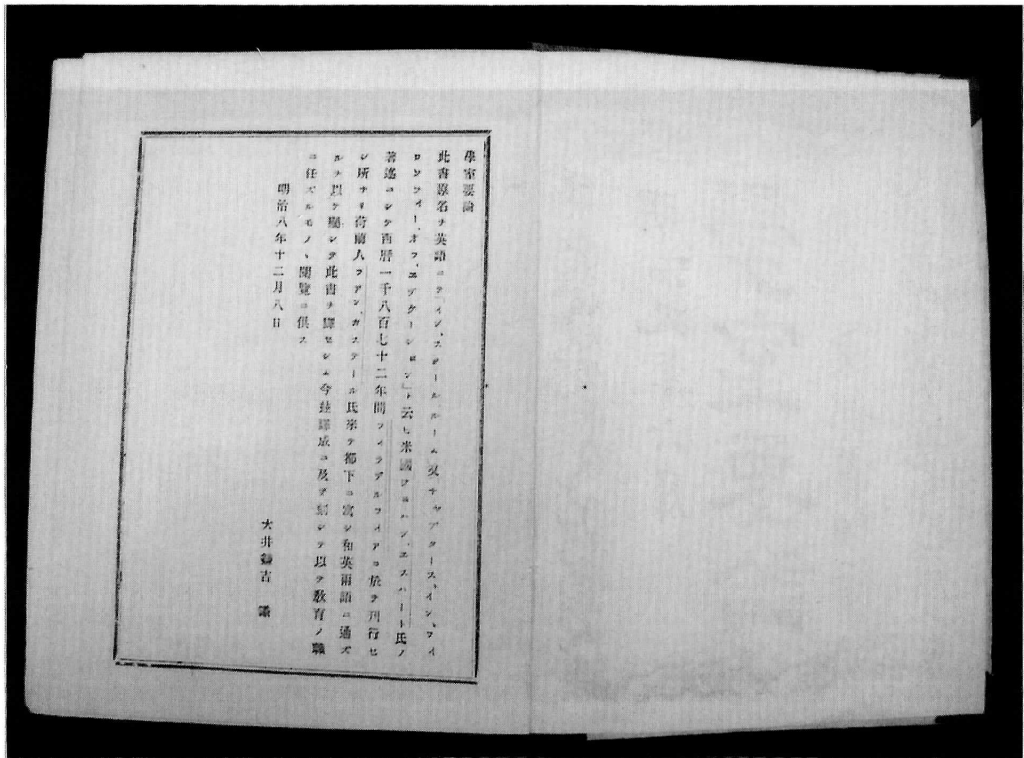 學室要論
此書原名ヲ英語ニテ「イン、スクールルーム又チャプタース、イン、フィ
ロソフィー、オフ、エヅケーション」ト云ヒ米國ジョハン、エスハート氏ノ
著述ニシテ西暦一千八百七十二年間フィラデルフィアニ於テ刊行セ
シ所ナリ荷蘭人ファン、カステール氏來テ都下ニ寓シ和英兩語ニ通ズ
ルヲ以テ囑シテ此書ヲ譯セシム今玆譯成ニ及ヲ刻シテ以テ教育ノ職
ニ任ズルモノヽ閲覽ニ供ス
明治八年十二月八日
大井鎌吉 識